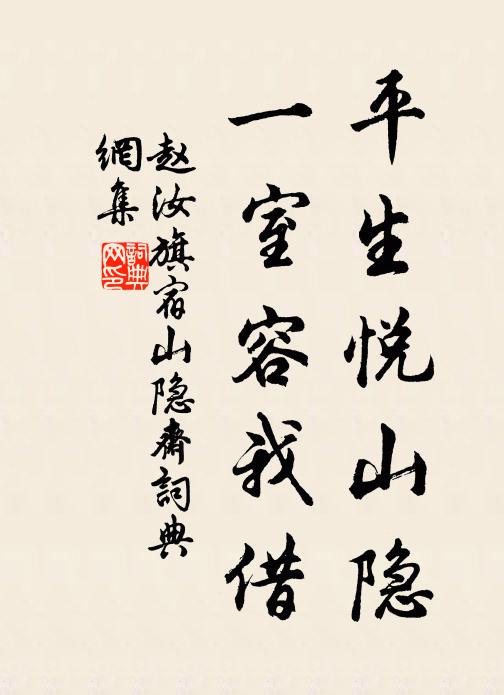 平生悦山隐
一室容我借
赵汝旗宿山隐齋詞典
網集
詞典网印